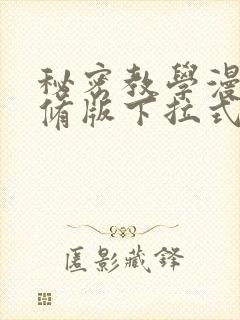 秘密教學漫
脩版下拉式
匿影藏鋒